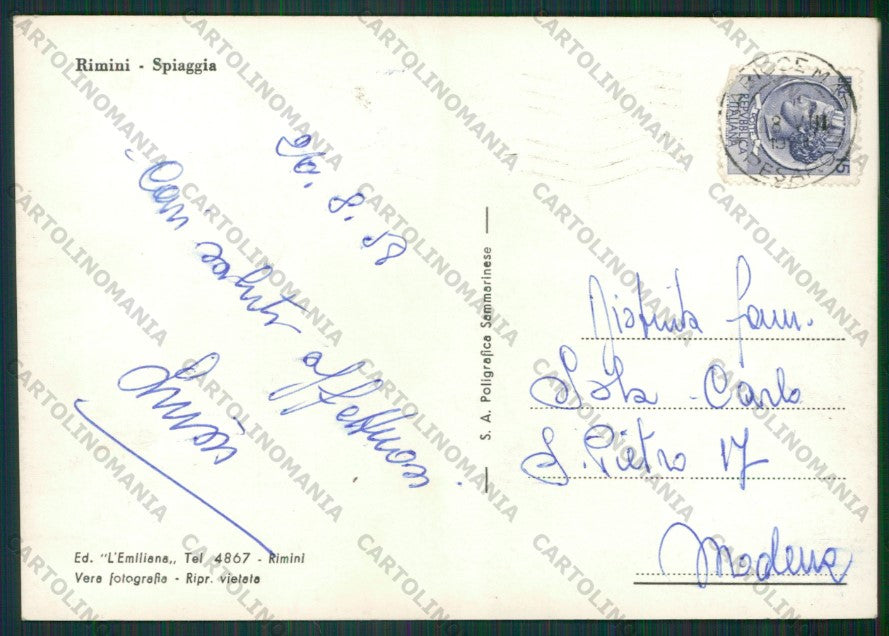 Rimini - Spiaggia
REPVBBLICA
ITALIANA
15
29. 8. 58
Cari saluti
affettuosi
S. A. Poligrafica Sammarinese
Distinta fam.
Carlo
S. Pietro 17
Modena
Ed. "L'Emiliana„ Tel 4867 - Rimini
Vera fotografia - Ripr. vietata
CARTOLINOMANIA